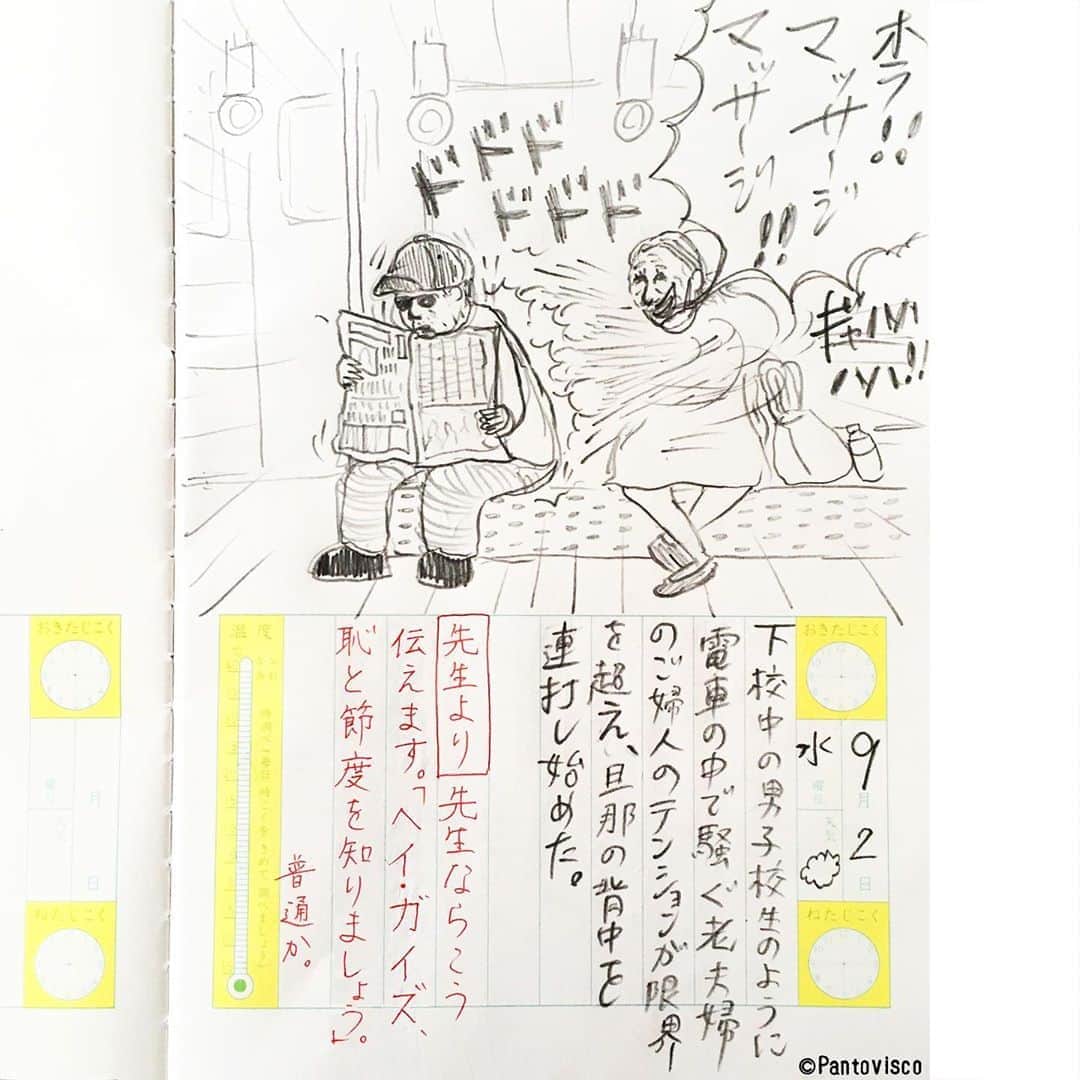 ホラ!!
マッサージ
マッサージ!!
ギャハハハハ!!
ドドド
ドドド
おきたじこく
9月2日
水曜日
天気
ねたじこく
下校中の男子校生のように
電車の中で騒ぐ老夫婦
のご婦人のテンションが限界
を超え、旦那の背中を
連打し始めた。
先生より 先生ならこう
伝えます。「ヘイ・ガイズ、
恥と節度を知りましょう」。
普通か。
温度
おきたじこく
月 日
曜日
ねたじこく
©Pantovisco